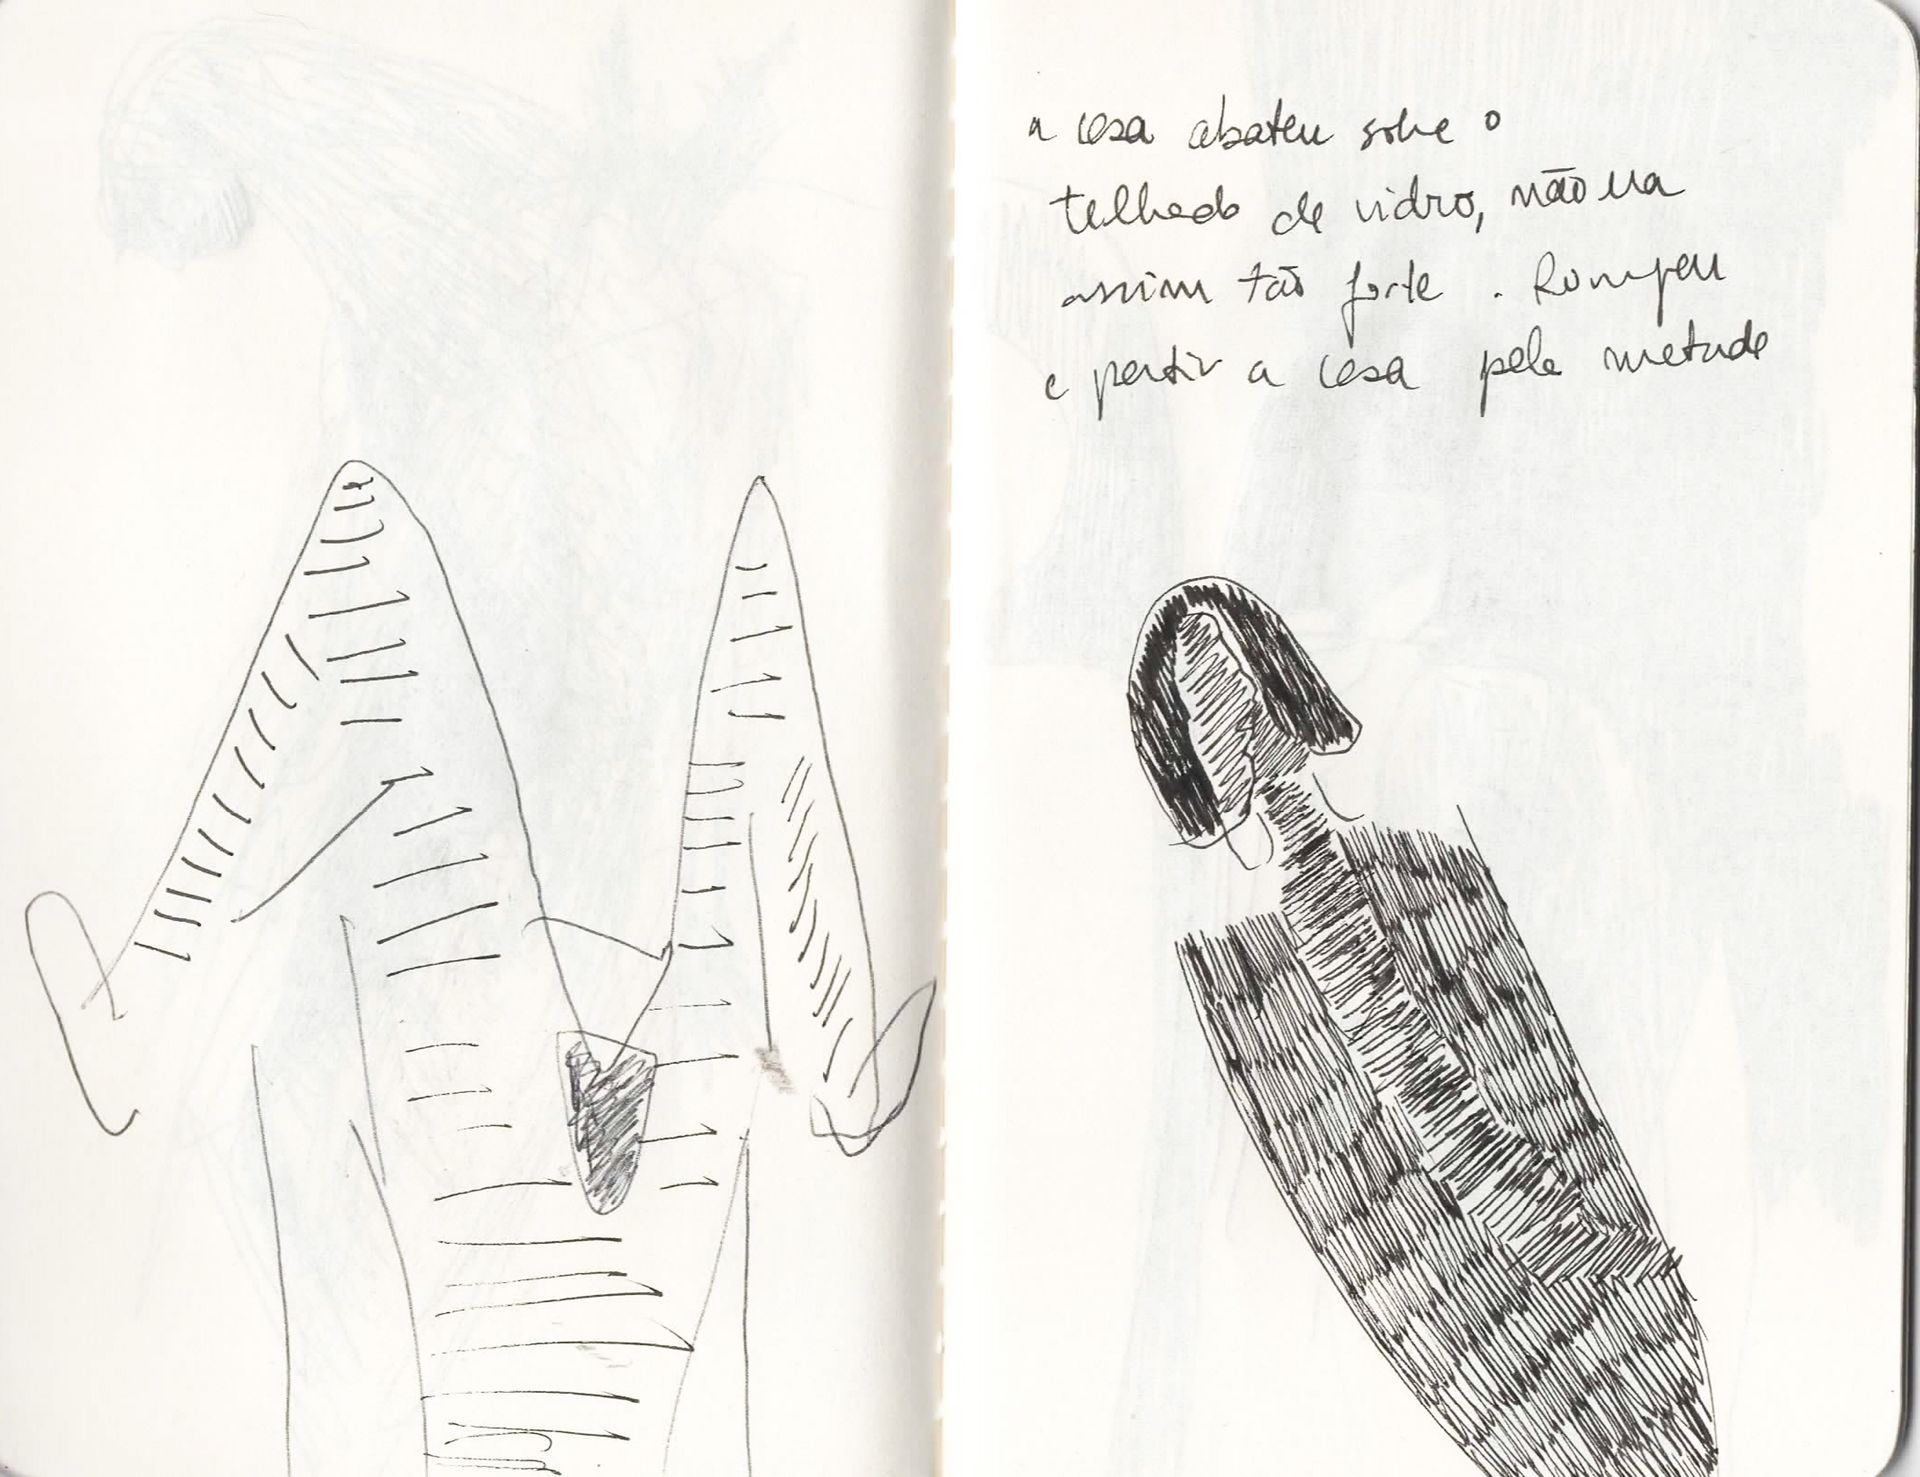 a casa abateu sobre o
telhado de vidro, não era
assim tão forte. Rompeu
e partir a casa pela metade